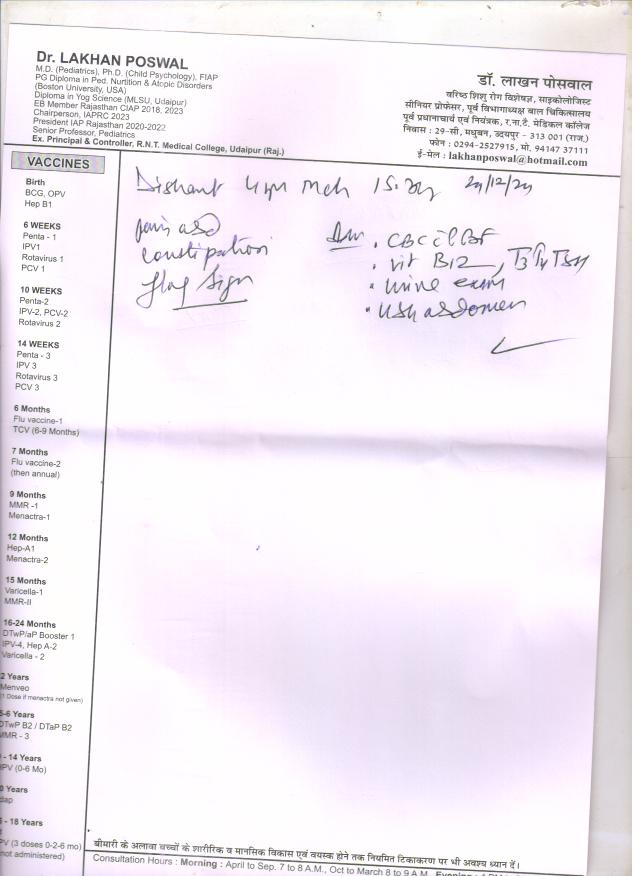 Dr. LAKHAN POSWAL
M.D. (Pediatrics), Ph.D. (Child Psychology), FIAP
PG Diploma in Ped. Nurtition & Atopic Disorders
(Boston University, USA)
Diploma in Yog Science (MLSU, Udaipur)
EB Member Rajasthan CIAP 2018, 2023
Chairperson, IAPRC 2023
President IAP Rajasthan 2020-2022
Senior Professor, Pediatrics
Ex. Principal & Controller, R.N.T. Medical College, Udaipur (Raj.)
डॉ. लाखन पोसवाल
वरिष्ठ शिशु रोग विशेषज्ञ, साइकोलोजिस्ट
सीनियर प्रोफेसर, पूर्व विभागाध्यक्ष बाल चिकित्सालय
पूर्व प्रधानाचार्य एवं नियंत्रक, र.ना.टै. मेडिकल कॉलेज
निवास : 29-सी, मधुबन, उदयपुर - 313 001 (राज.)
फोन : 0294-2527915, मो. 94147 37111
ई-मेल : lakhanposwal@hotmail.com
VACCINES
Birth
BCG, OPV
Hep B1
6 WEEKS
Penta - 1
IPV1
Rotavirus 1
PCV 1
10 WEEKS
Penta-2
IPV-2, PCV-2
Rotavirus 2
14 WEEKS
Penta - 3
IPV 3
Rotavirus 3
PCV 3
6 Months
Flu vaccine-1
TCV (6-9 Months)
7 Months
Flu vaccine-2
(then annual)
9 Months
MMR -1
Menactra-1
12 Months
Hep-A1
Menactra-2
15 Months
Varicella-1
MMR-II
16-24 Months
DTwP/aP Booster 1
IPV-4, Hep A-2
Varicella - 2
2 Years
Menveo
(1 Dose if menactra not given)
5-6 Years
DTwP B2 / DTaP B2
MMR - 3
- 14 Years
PV (0-6 Mo)
0 Years
dap
- 18 Years
PV (3 doses 0-2-6 mo)
not administered)
Dishant 4 yr Mch 15. 29/12/24
pain abd
constipation
flag sign
CBC PBF
vit B12, T3 T4 TSH
urine exam
USG abdomen
बीमारी के अलावा बच्चों के शारीरिक व मानसिक विकास एवं वयस्क होने तक नियमित टिकाकरण पर भी अवश्य ध्यान दें।
Consultation Hours : Morning : April to Sep. 7 to 8 A.M., Oct to March 8 to 9 A.M.